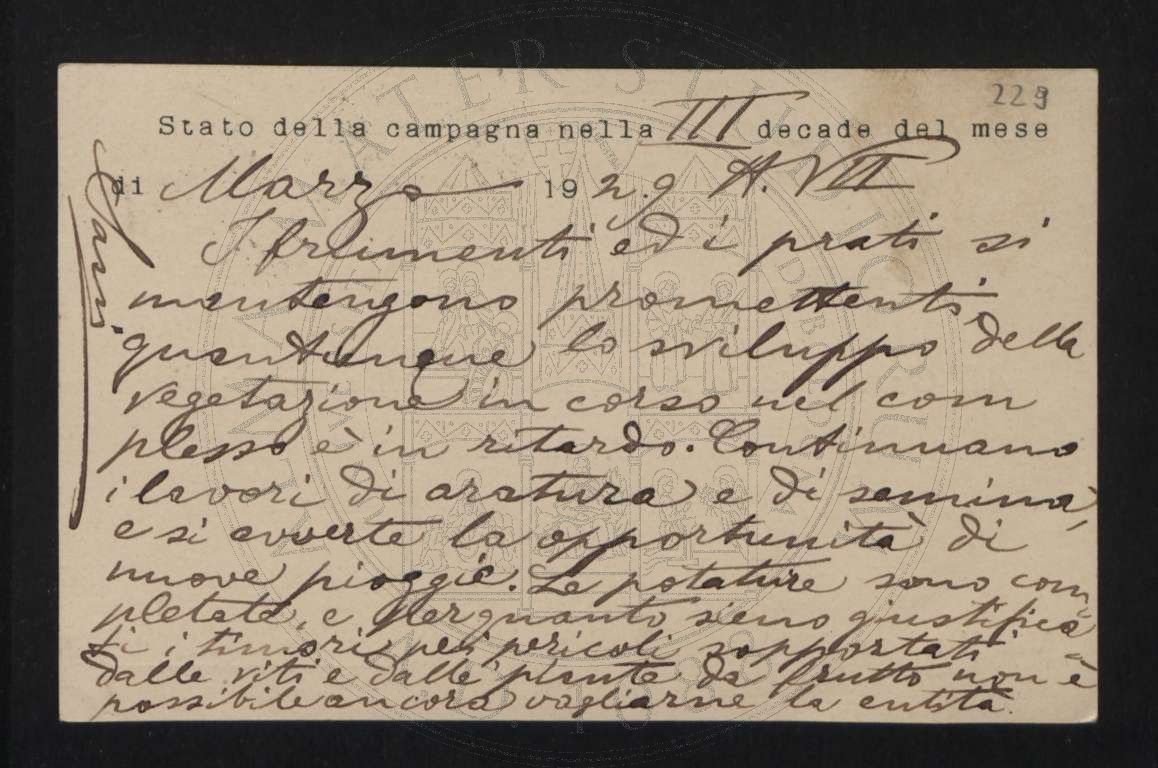 229
Stato della campagna nella III decade del mese
di Marzo 1929 A. VII
I frumenti ed i prati si
mantengono promettenti,
quantunque lo sviluppo della
vegetazione in corso nel com
plesso è in ritardo. Continuano
i lavori di aratura e di semina,
e si avverte la opportunità di
nuove pioggie. Le potature sono com=
pletate, e perquanto siano giustifica=
ti i timori pei pericoli sopportati
dalle viti e dalle piante da frutto non è
possibile ancora vagliarne la entità.